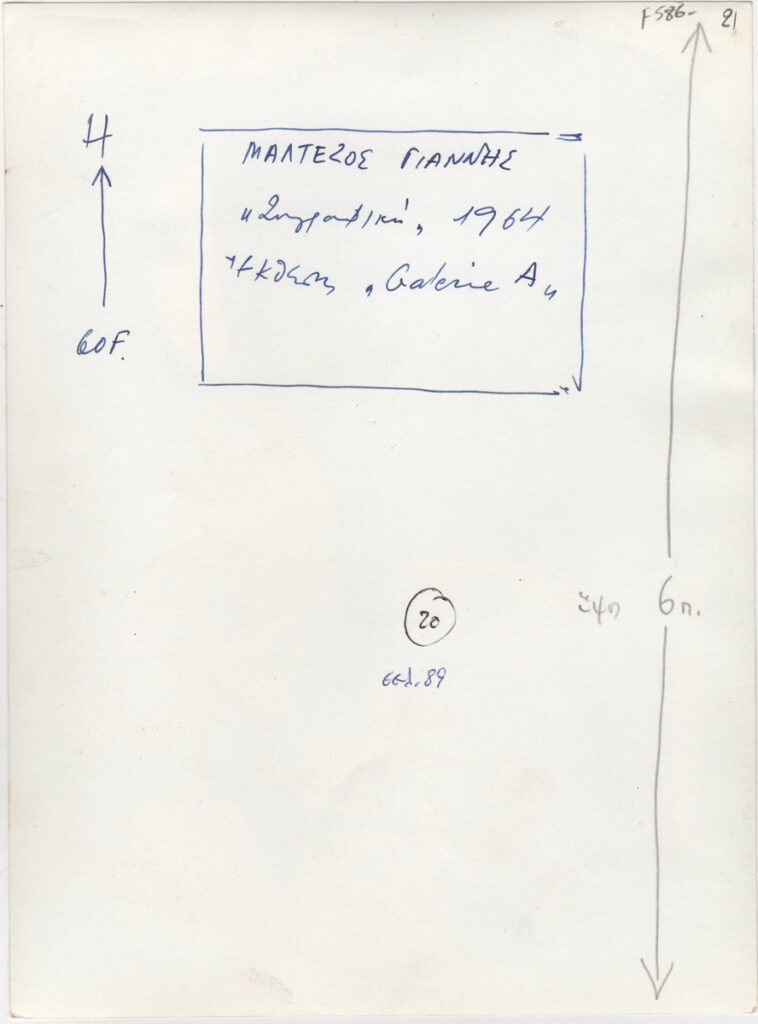 F586- 21
Η
ΜΑΛΤΕΖΟΣ ΓΙΑΝΝΗΣ
"Ζωγραφική" 1964
Έκθεση "Galerie A"
60F.
ύψη 6π.
20
σελ. 89